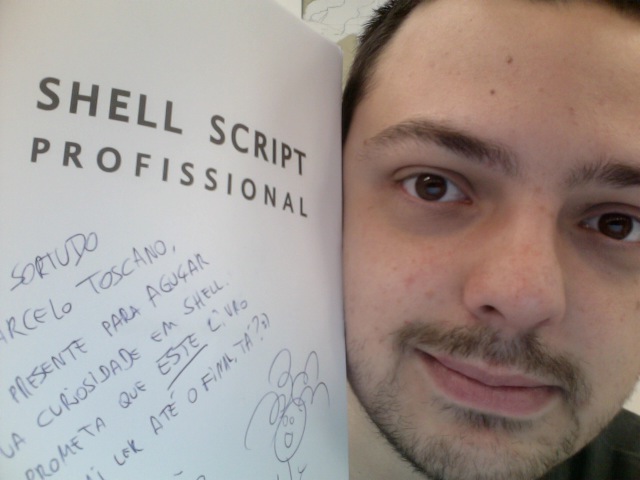 SHELL SCRIPT
PROFISSIONAL
SORTUDO
ARCELO TOSCANO,
PRESENTE PARA AGUÇAR
UA CURIOSIDADE EM SHELL.
PROMETA QUE ESTE LIVRO
LER ATÉ O FINAL, TÁ? :)